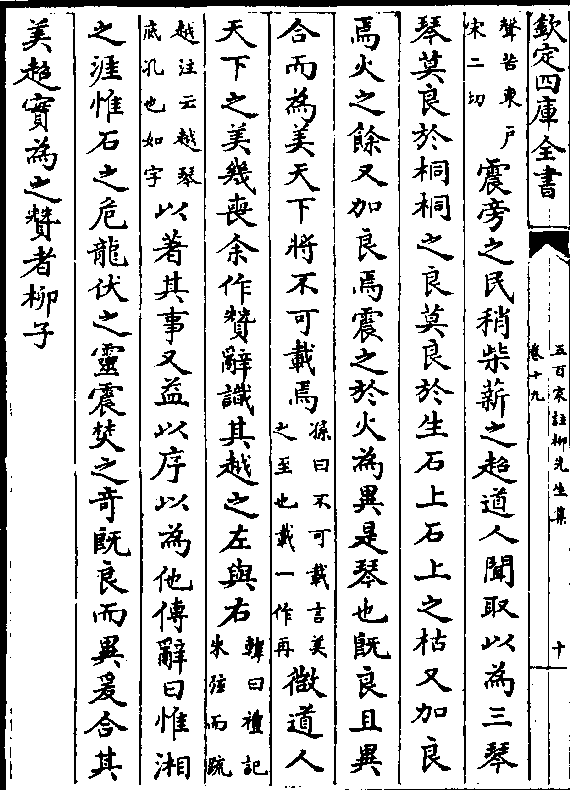 欽定四庫全書
五百家註柳先生集
卷十九
十
聲苦東戶
宋二切
震旁之民稍柴薪之超道人聞取以為三琴
琴莫良於桐桐之良莫良於生石上石上之枯又加良
焉火之餘又加良焉震之於火為異是琴也既良且異
合而為美天下將不可載焉
孫曰不可載言美
之至也載一作再
微道人
天下之美幾喪余作贊辭識其越之左與右
韓曰禮記
朱弦而疏
越注云越琴
底孔也如字
以著其事又益以序以為他傳辭曰惟湘
之涯惟石之危龍伏之靈震焚之奇既良而異爰合其
美超實為之贊者柳子